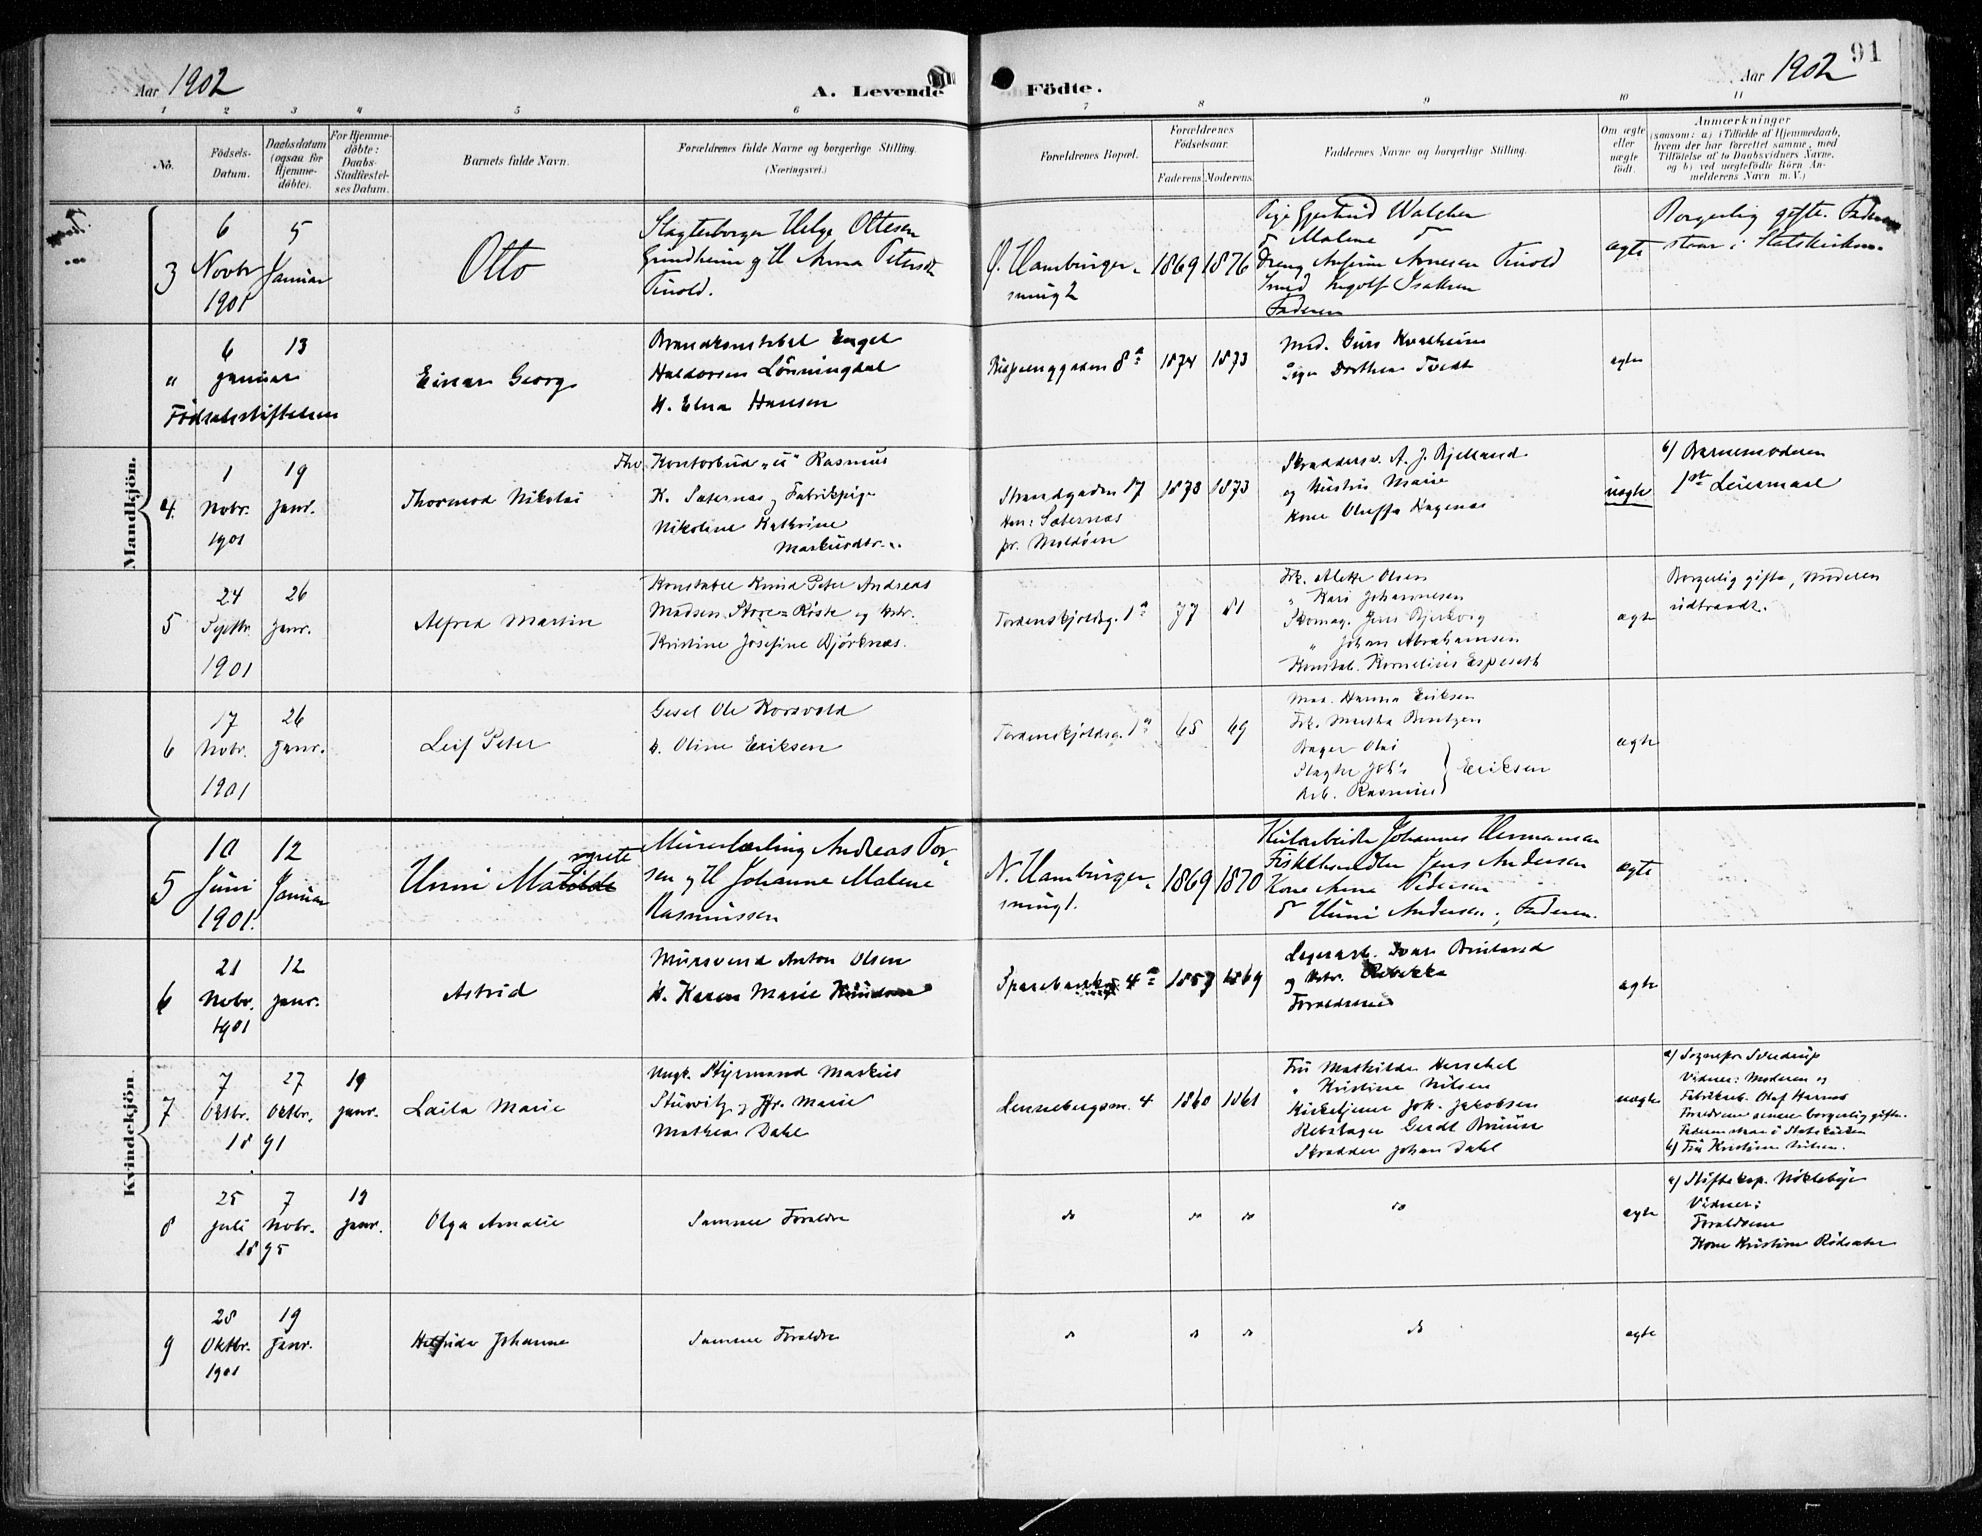 91
Aar 1902
A. Levende
Födte.
Aar 1902
1 2 3 4 5 6 7 8 9 10 11
No.
Födsels-
Datum.
Daabsdatum
(ogsaa for
Hjemme-
döbte).
For Hjemme-
döbte:
Daabs-
Stadfæstel-
ses Datum.
Barnets fulde Navn.
Forældrenes fulde Navne og borgerlige Stilling.
(Næringsvei.)
Forældrenes Bopæl.
Forældrenes
Födselsaar.
Faderens.
Moderens.
Faddernes Navne og borgerlige Stilling.
Om ægte
eller
uægte
födt.
Anmærkninger
(saasom: a) i Tilfælde af Hjemmedaab,
hvem der har forrettet samme, med
Tilföielse af to Daabsvidners Navne,
og b) ved uægtefödte Börn An-
melderens Navn m. V.)
Mandkjön.
3
6
Novbr
1901
5
Januar
Otto
Slagterborger Helge Ottesen
Grindheim og H. Anna Petersdtr
Tuold.
Ø. Hamburger-
smugt
1869
1876
Pige Gjertrud Walcher
do Malene do
Dreng Anfinn Arnesen Tuold
Smed Ingolf Isaksen
Faderen
ægte
Borgerlig gifte. Faderen
staar i Statskirken.
"
6
januar
13
Födselsstiftelsen
Einar Georg
Brandkonstabel Engel
Haldorsen Lönningdal
H. Elna Hansen
8a
1874
1873
Mad. Guri Kvalheim
Pige Dorthea Tvedt
ægte
4.
1
Novbr.
1901
19
janr.
Thormod Nikolai
Kontorbud "u" Rasmus
K. Sæternæs og Fabrikpige
Nikoline Kathrine
Markusdtr.
Strandgaden 17
Han: Sæternæs
pr. Moldöen
1878
1873
Skrædders. A. J. Bjelland
og Hustru Marie
Kone Oluffa Hagenæs
uægte
b) Barnemoderen
1ste Leiermaal
5
24
Septbr.
1901
26
janr.
Alfred Martin
Konstabel Knud Peter Andreas
Madsen Store-Riste og Hstr.
Kristine Josefine Björknæs.
Tordenskjoldsg. 1a
77
81
Frk. Alette Olsen
" Kari Johannesen
Skomag. Jens Bjerkvig
" Johan Abrahamsen
Konstab. Kornelius Espeseth
ægte
Borgerlig gifte, Moderen
udtraadt.
6
17
Novbr.
1901
26
Janr.
Leif Peter
Gesel Ole Korsvold
H. Oline Eriksen
Tordenskjoldsg. 1a
65
69
Mad. Hanna Eriksen
Frk. Martha Berntzen
Bager Olai
Slagter Joh's } Eriksen
Arb. Rasmus
ægte
Kvindekjön
5
10
Juni
1901.
12
Januar
Unni Mathilde
Murerlærling Andreas Tor-
sen og H Johanne Malene
Rasmussen
N. Hamburger-
smugt.
1869
1870
Kularbeider Johannes Hermansen
Fiskehandler Jens Andersen
Kone Anne Pedersen
do Unni Andersen, Faderen.
ægte
6
21
Novbr.
1901
12
janr.
Astrid
Mursvend Anton Olsen
H. Karen Marie Knudsen
4a
1857
1869
Lagerarb. Ivar Breiland
og Hstr. Rebekka
Forældrene
ægte
7
7
Oktbr.
1891
27
Oktbr.
19
janr.
Laila Marie
Ungk. Styrmand Markus
Sturvitz og Jfr. Marie
Mathea Dahl
Lennebergsm. 4
1860
1861
Fru Mathilde Herschel
" Kristine Nilsen
Kirketjener Joh. Jakobsen
Rebslager Gerdt Bruun
Skrædder Johan Dahl
uægte
a) Sognepr. Sverdrup
Vidner: Moderen og
Fabrikarb. Olaf Hernæs
Forældrene senere borgerlig gifte.
Faderen staar i Statskirken
b) Fru Kristine Nilsen.
8
25
juli
1895
7
Novbr.
19
janr.
Olga Amalie
Samme Forældre
do
do
do
do
ægte
a) Stiftskap. Nöklebye
Vidner:
Forældrene
Kone Kristine Rödsæter
9
28
Oktbr.
1901
19
Janr.
Helfrida Johanne
Samme Forældre
do
do
do
do
ægte